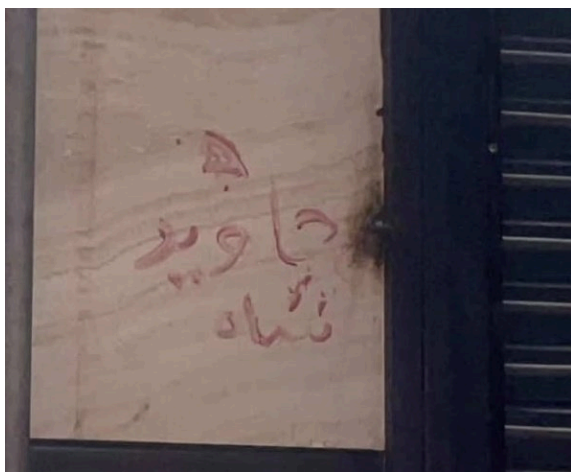 جاوید
شاه